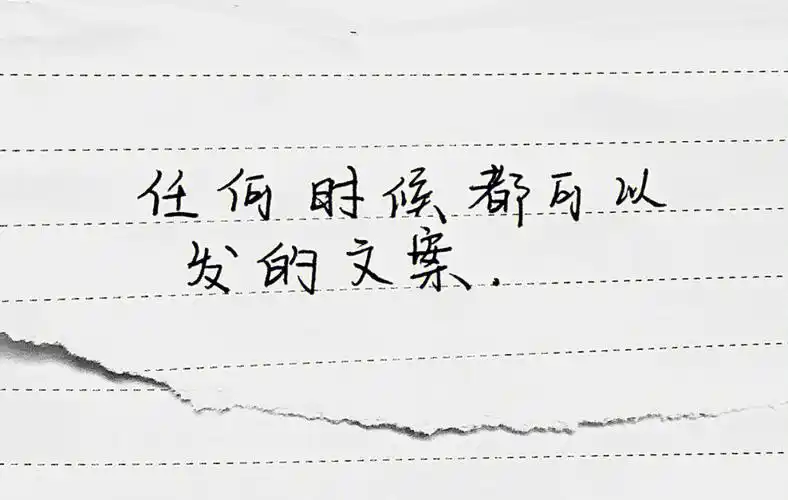 任何时候都可以
发的文案.